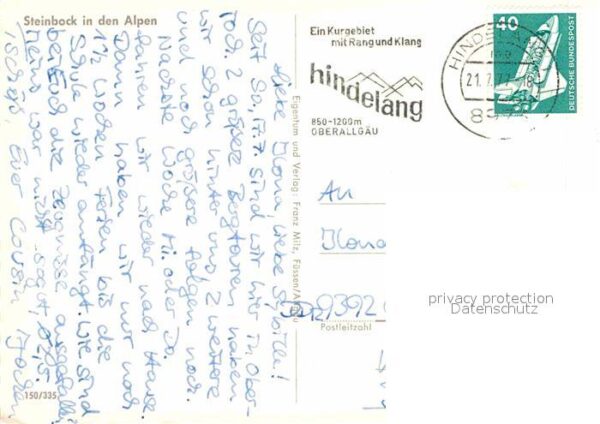 Steinbock in den Alpen
Liebe Ilona, liebe
Seit Sa, 17.7. sind wir hier in Ober-
joch. 2 größere Bergtouren haben
wir schon hinter uns 2 weitere
und noch größere folgen noch.
Nächste Woche Mi. oder Do.
fahren wir wieder nach Hause.
Dann haben wir nur noch
1½ Wochen Ferien bis die
Schule wieder anfängt. Wie sind
bei Euch die Zeugnisse ausgefallen?
Meins war nicht
Tschüß, Euer Cousin Jochen
150/335
Eigentum und Verlag: Franz Milz, Füssen/Allgäu
Ein Kurgebiet
mit Rang und Klang
hindelang
850-1200m
OBERALLGÄU
HINDELA
21.7.77
897
40
DEUTSCHE BUNDESPOST
An
Ilona
Postleitzahl
privacy protection
Datenschutz